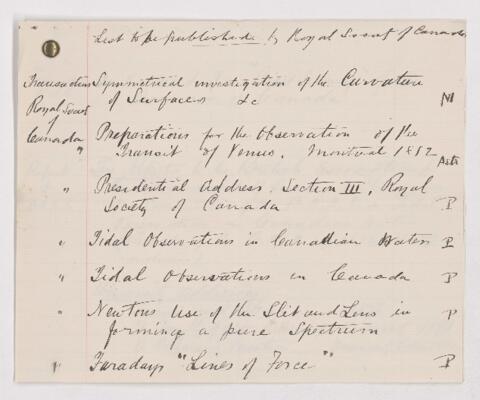 List to be published by Royal Society of Canada
Transactions Symmetrical investigation of the Curvature
Royal Society of Surfaces &c M
of
Canada Preparations for the Observation of the
" Transit of Venus, Montreal 1882 Astr
" Presidential Address, Section III, Royal
Society of Canada P
" Tidal Observations in Canadian Waters P
" Tidal Observations in Canada P
" Newtons use of the Slit and Lens in P
forming a pure Spectrum
" Faradays "Lines of Force" P